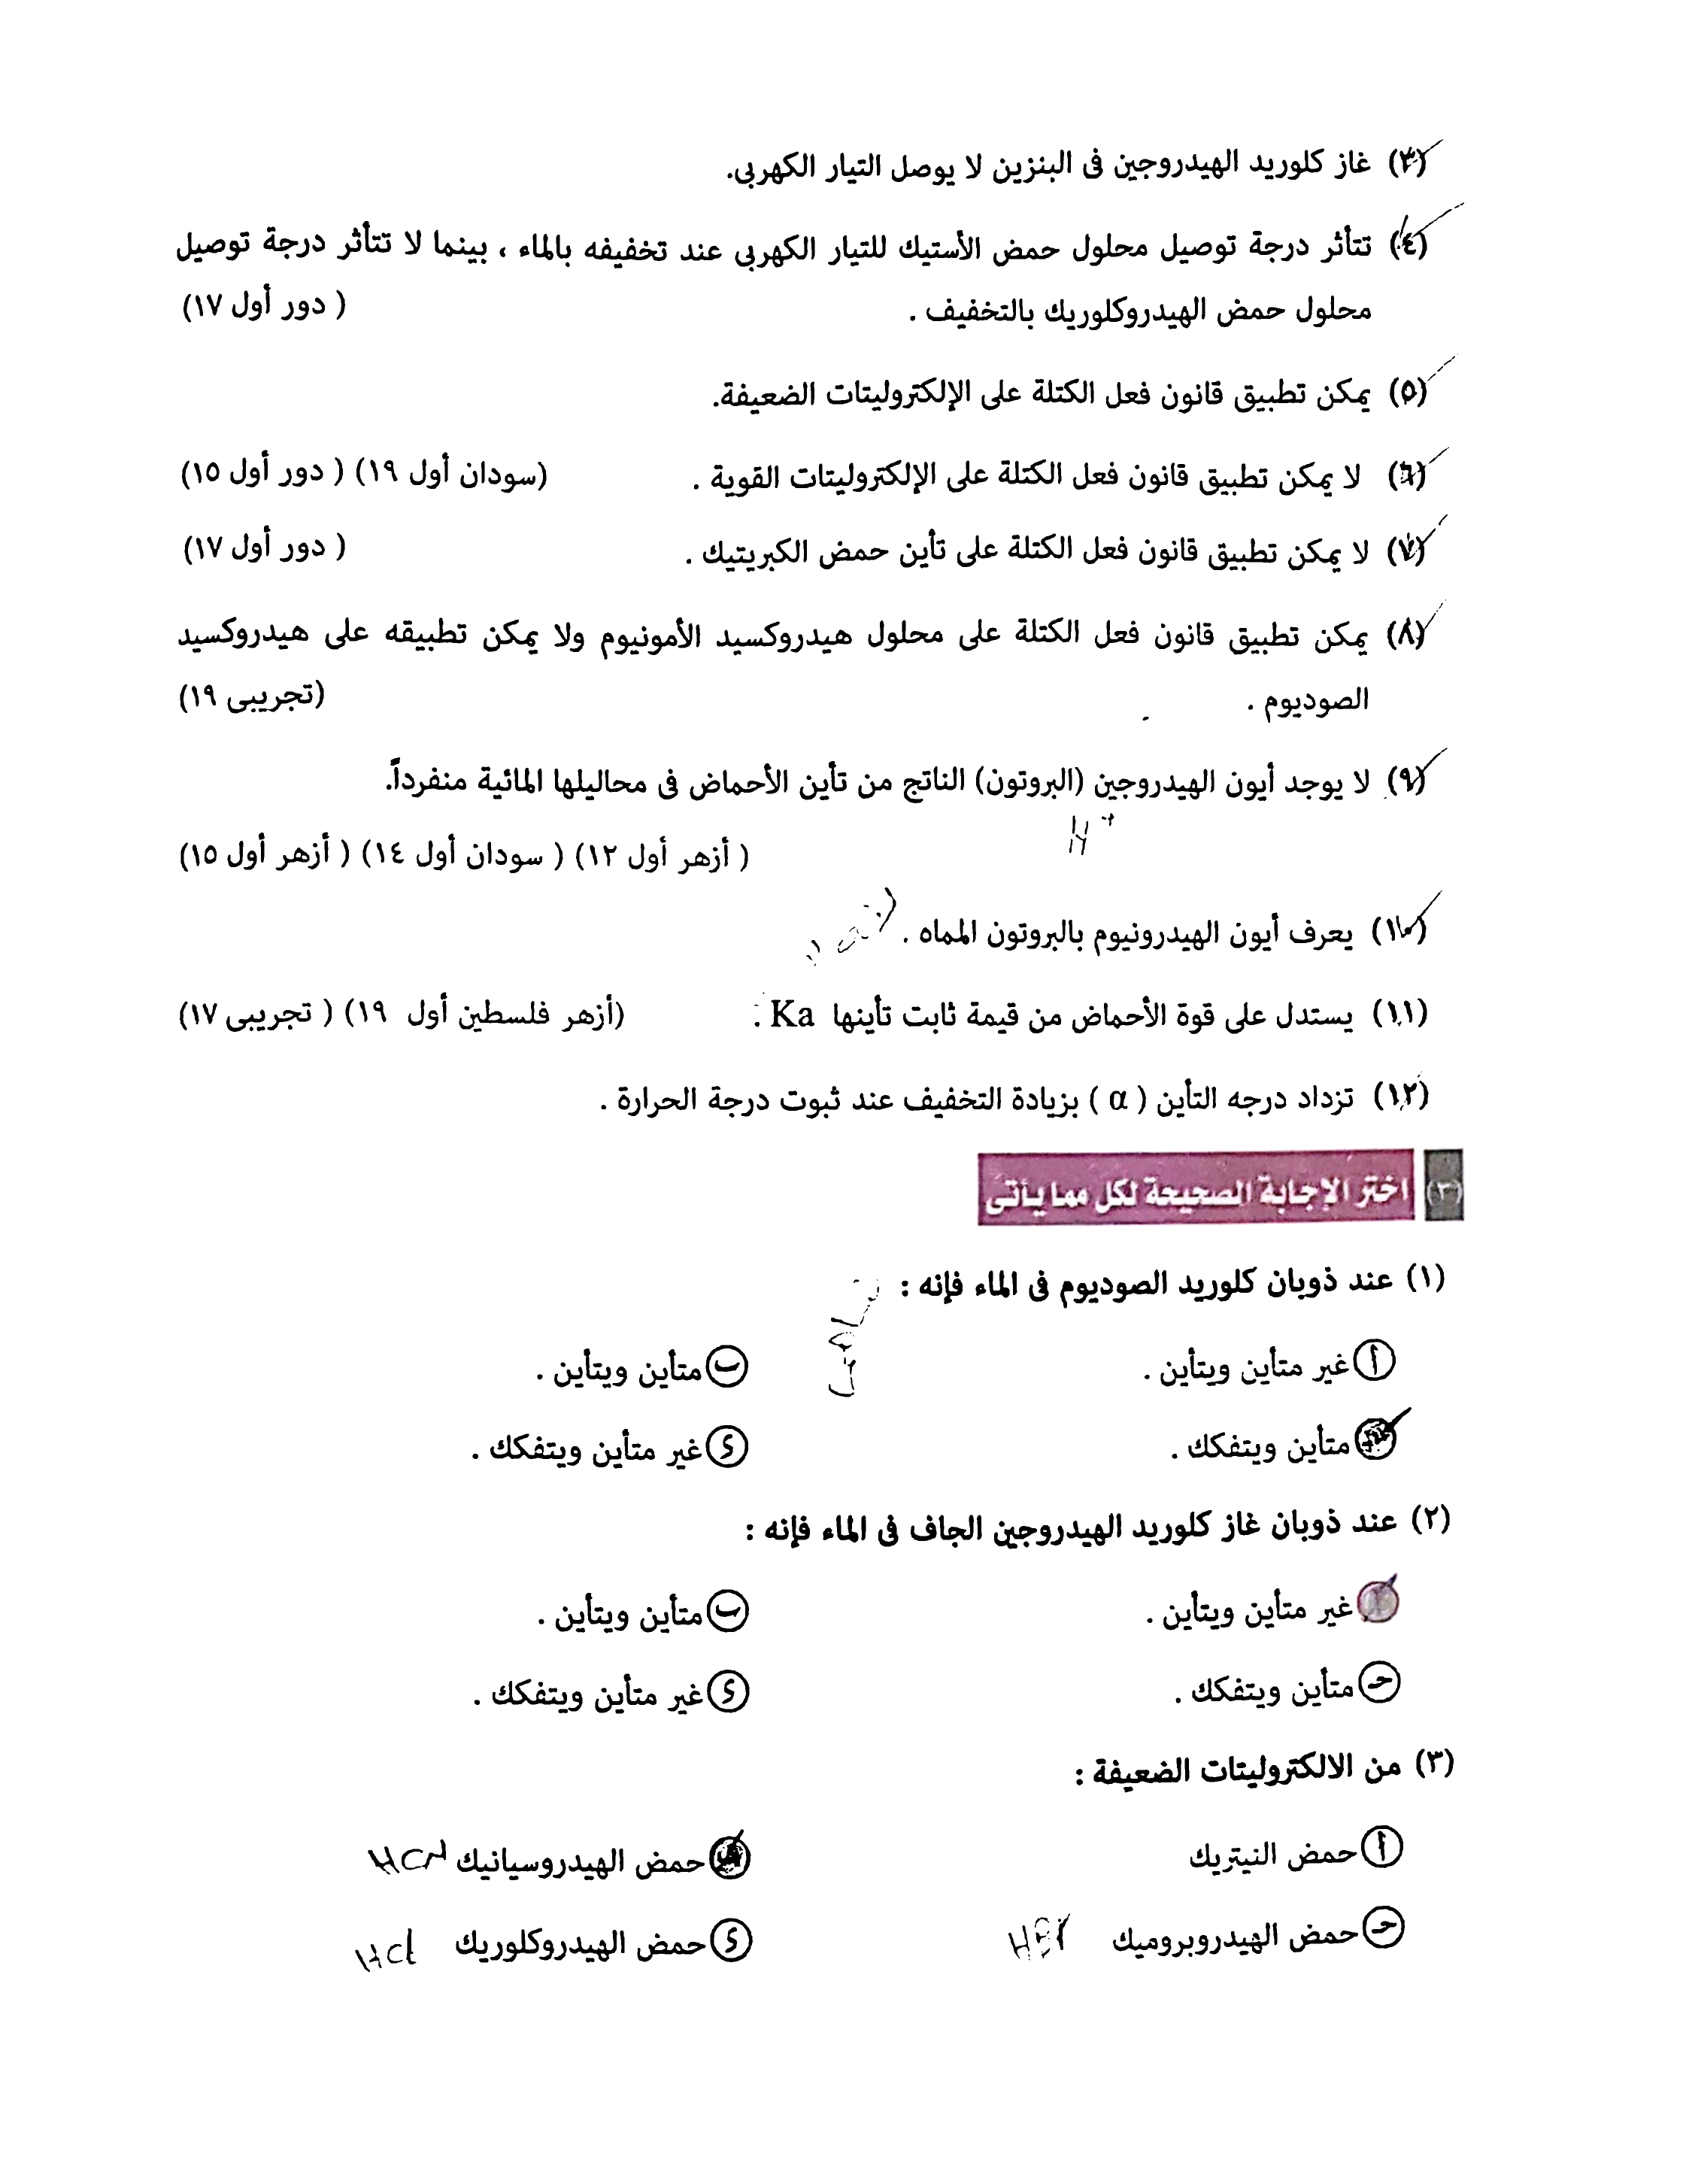 (٣) غاز كلوريد الهيدروجين فى البنزين لا يوصل التيار الكهربى.
(٤) تتأثر درجة توصيل محلول حمض الأستيك للتيار الكهربى عند تخفيفه بالماء ، بينما لا تتأثر درجة توصيل
محلول حمض الهيدروكلوريك بالتخفيف . ( دور أول ١٧)
(٥) يمكن تطبيق قانون فعل الكتلة على الإلكتروليتات الضعيفة.
(٦) لا يمكن تطبيق قانون فعل الكتلة على الإلكتروليتات القوية . (سودان أول ١٩) ( دور أول ١٥)
(٧) لا يمكن تطبيق قانون فعل الكتلة على تأين حمض الكبريتيك . ( دور أول ١٧)
(٨) يمكن تطبيق قانون فعل الكتلة على محلول هيدروكسيد الأمونيوم ولا يمكن تطبيقه على هيدروكسيد
الصوديوم . (تجريبى ١٩)
(٩) لا يوجد أيون الهيدروجين (البروتون) الناتج من تأين الأحماض فى محاليلها المائية منفرداً.
H+
( أزهر أول ١٢) ( سودان أول ١٤) ( أزهر أول ١٥)
(١٠) يعرف أيون الهيدرونيوم بالبروتون المماه .
(١١) يستدل على قوة الأحماض من قيمة ثابت تأينها Ka . (أزهر فلسطين أول ١٩) ( تجريبى ١٧)
(١٢) تزداد درجه التأين ( α ) بزيادة التخفيف عند ثبوت درجة الحرارة .
(٣) اختر الإجابة الصحيحة لكل مما يأتى
(١) عند ذوبان كلوريد الصوديوم فى الماء فإنه :
أ غير متأين ويتأين . ب متأين ويتأين .
متأين ويتفكك . د غير متأين ويتفكك .
(٢) عند ذوبان غاز كلوريد الهيدروجين الجاف فى الماء فإنه :
غير متأين ويتأين . ب متأين ويتأين .
حـ متأين ويتفكك . د غير متأين ويتفكك .
(٣) من الالكتروليتات الضعيفة :
أ حمض النيتريك حمض الهيدروسيانيك HCN
حـ حمض الهيدروبروميك HBr د حمض الهيدروكلوريك HCl